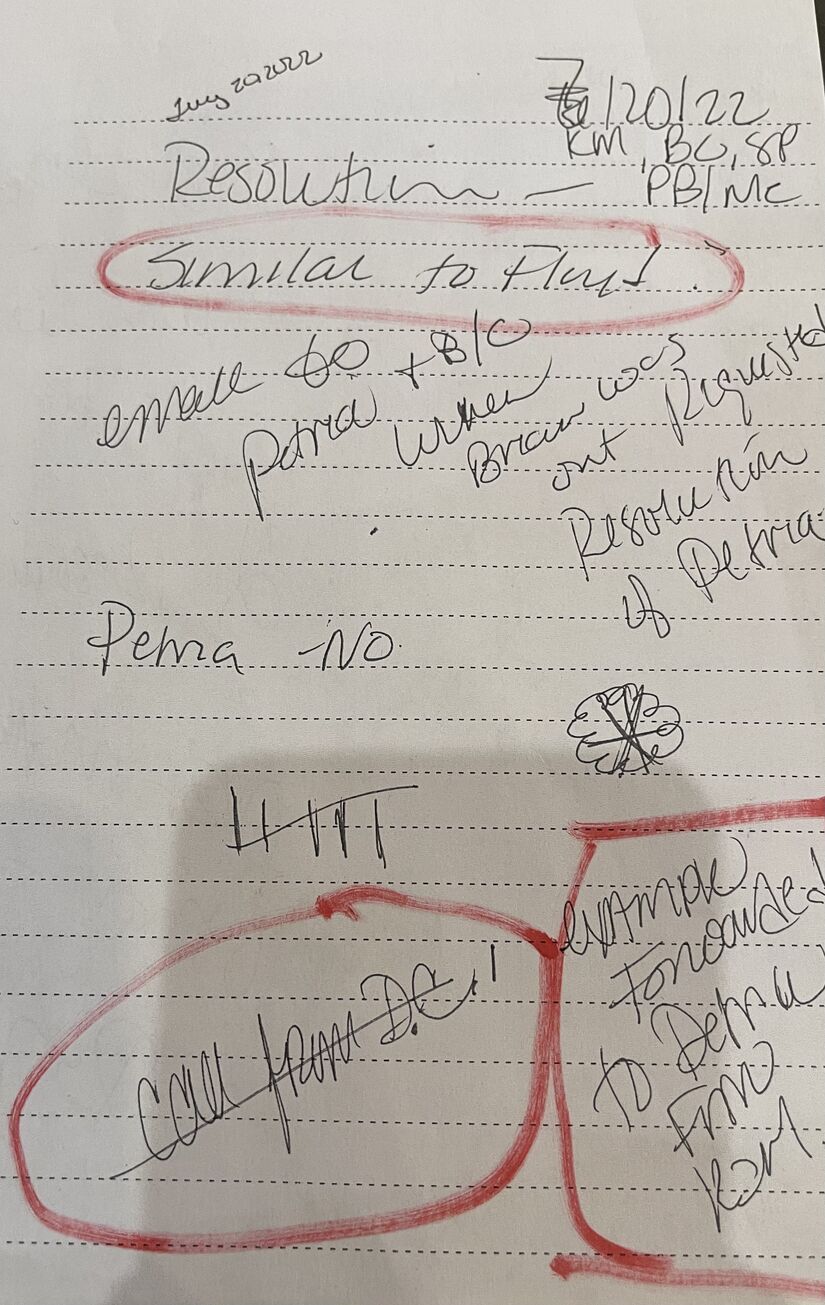 July 20 2022
7/20/22
KM, BO, SP
Resolution — PB/MC
Similar to Floyd.
email to
Petria + B/O
when
Brian was
out Requested
Resolution
of Petria
Petria - NO
call from D.C.!
example
Forwarded
to Petria
From